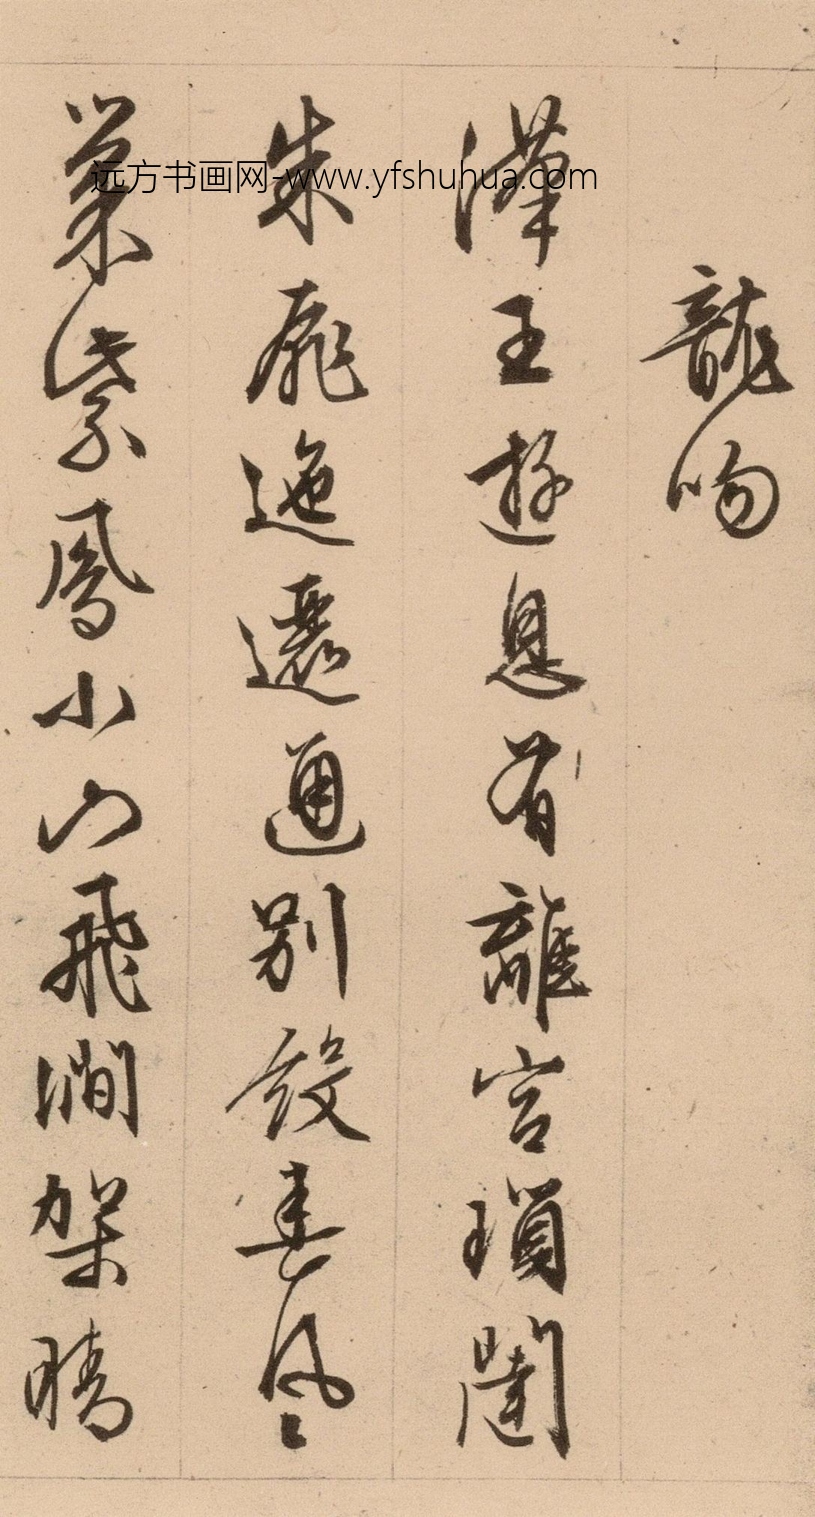 龍吻
漢王遊息有離宮瑣闥
朱扉迤邐通別殿春風
巢紫鳳小山飛澗架晴
远方书画网-www.yfshuhua.com